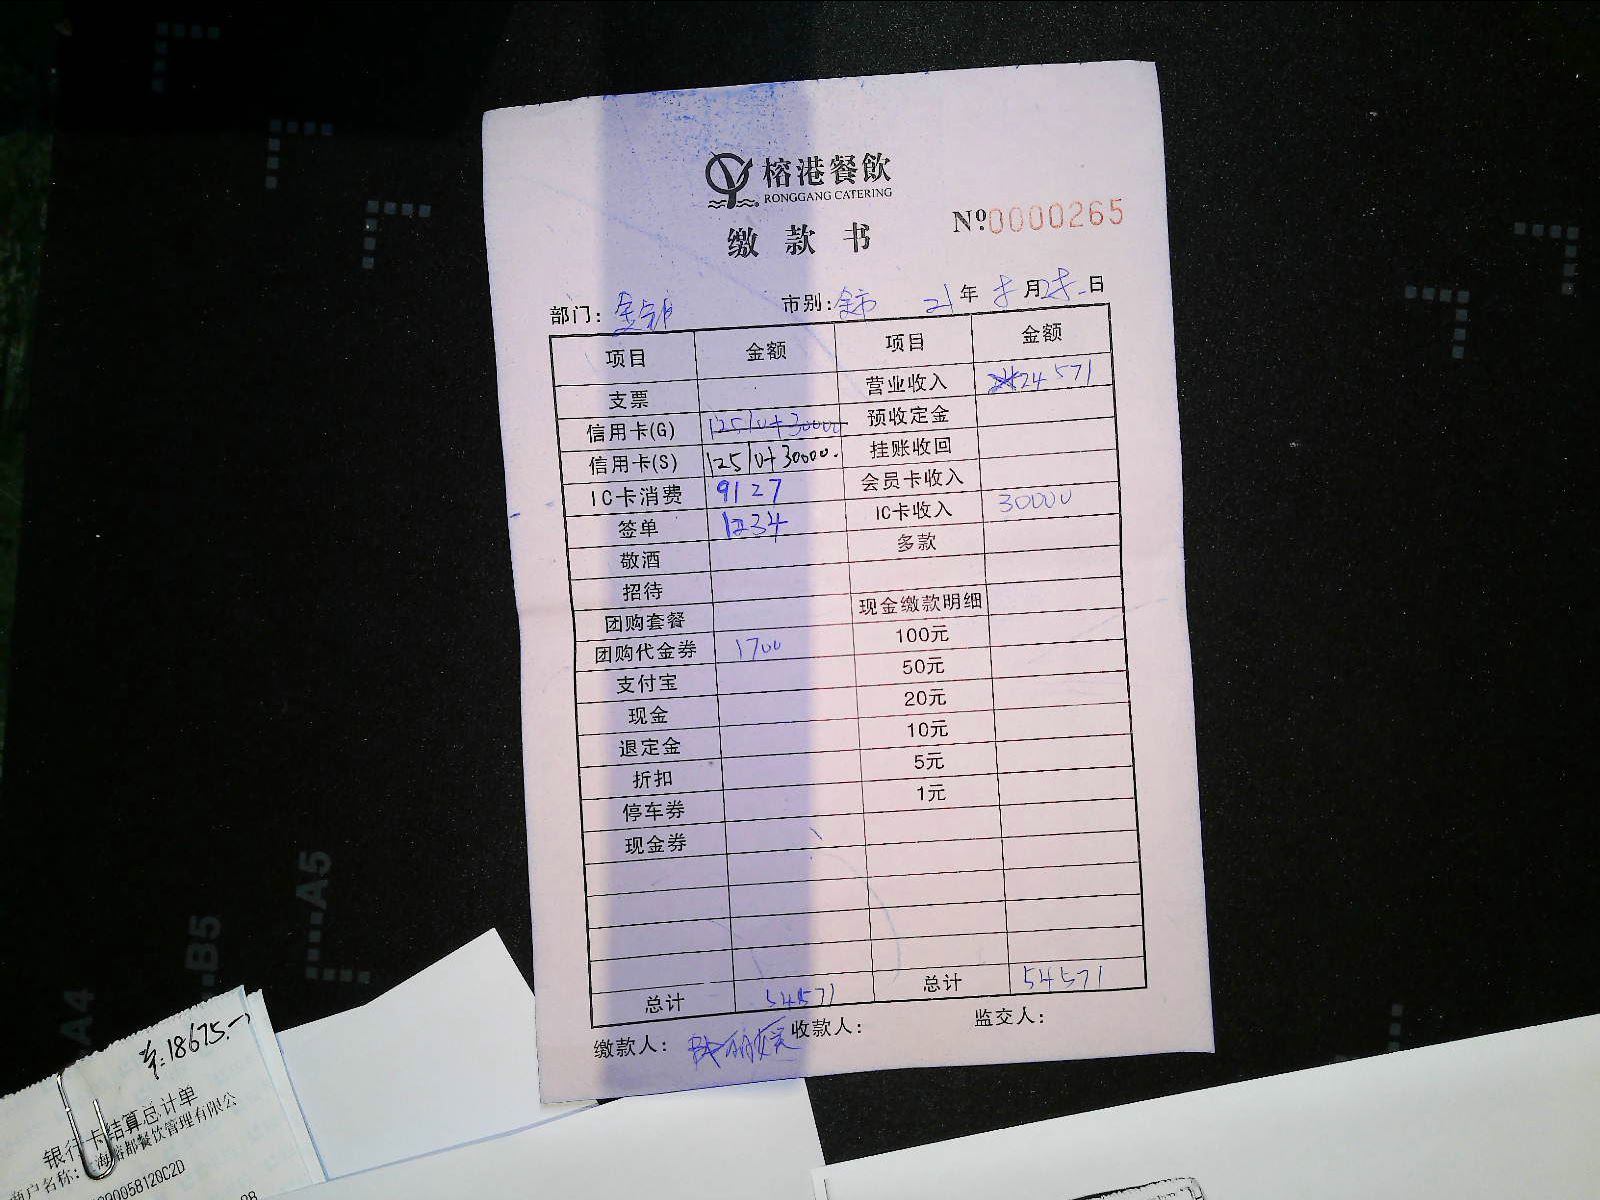 榕港餐飲
RONGGANG CATERING
缴款书
Nº:0000265
部门: 市别: 21年 月 日
项目 金额 项目 金额
支票 营业收入 24571
信用卡(G) 12510+30000 预收定金
信用卡(S) 12510+30000. 挂账收回
IC卡消费 9127 会员卡收入
签单 1234 IC卡收入 30000
敬酒 多款
招待
团购套餐 现金缴款明细
团购代金券 1700 100元
支付宝 50元
现金 20元
退定金 10元
折扣 5元
停车券 1元
现金券
总计 54571 总计 54571
缴款人: 收款人: 监交人:
18675.-
银行卡结算总计单
商户名称: 海榕都餐饮管理有限公
A4
B5
A5